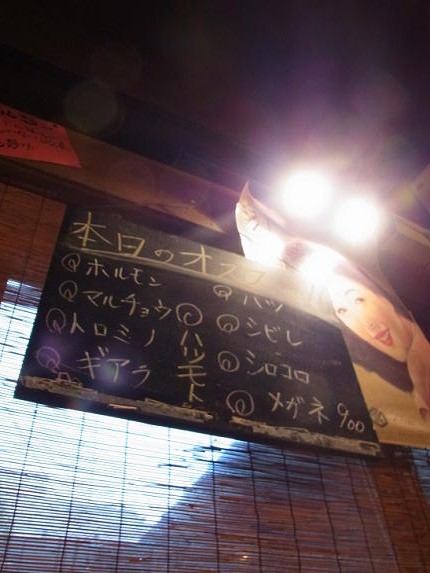 本日のオス
ホルモン
マルチョウ
トロミノ
ギアラ
ハツモト
ハツ
シビレ
シロコロ
メガネ 900